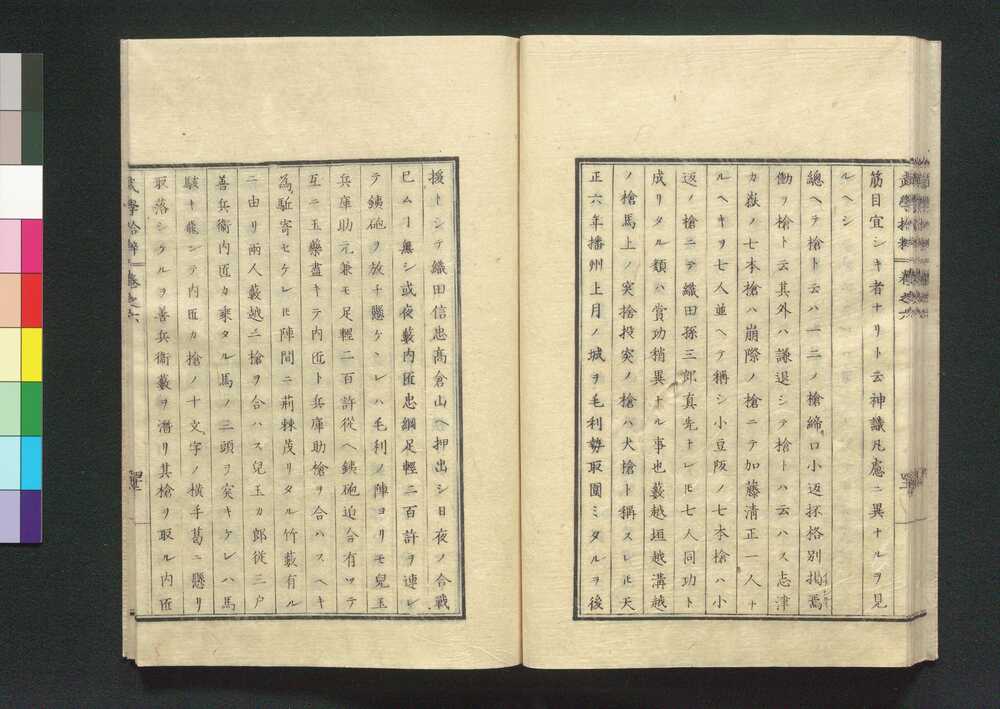 筋目宜シキ者ナリト云神識凡慮ニ異ナルヲ見
ルヘシ
總ヘテ槍ト云ハ一二ノ槍締口小返抔格別揭焉
働ヲ槍ト云其外ハ謙退シテ槍トハ云ハス志津
カ嶽ノ七本槍ハ崩際ノ槍ニテ加藤清正一人ナ
ルヘキヲ七人並ヘテ稱シ小豆阪ノ七本槍ハ小
返ノ槍ニテ織田孫三郎真先ナレ𪜈七人同功ト
成リタル類ハ賞功稍異ナル事也藪越垣越溝越
ノ槍馬上ノ突捨投突ノ槍ハ犬槍ト稱スレ𪜈天
正六年播州上月ノ城ヲ毛利勢取圍ミタルヲ後
援トシテ織田信忠高倉山ヘ押出シ日夜ノ合戰
已ムヿ無シ或夜藪内匠忠綱足輕二百許ヲ連レ
テ銕砲ヲ放チ懸ケシレハ毛利ノ陣ヨリモ兒玉
兵庫助元兼モ足輕二百許從ヘ銕砲迫合有ツテ
互ニ玉藥盡キテ内匠ト兵庫助槍ヲ合ハスヘキ
為駈寄セケレ𪜈陣間ニ荊棘茂リタル竹藪有ル
ニ由リ兩人藪越ニ槍ヲ合ハス兒玉カ郎從三户
善兵衛内匠カ乘タル馬ノ三頭ヲ突キケレハ馬
駭キ飛ンテ内匠カ槍ノ十文字ノ横手葛ニ懸リ
取落シケルヲ善兵衛藪ヲ潛リ其槍ヲ取ル内匠
武學拾粹 卷之六